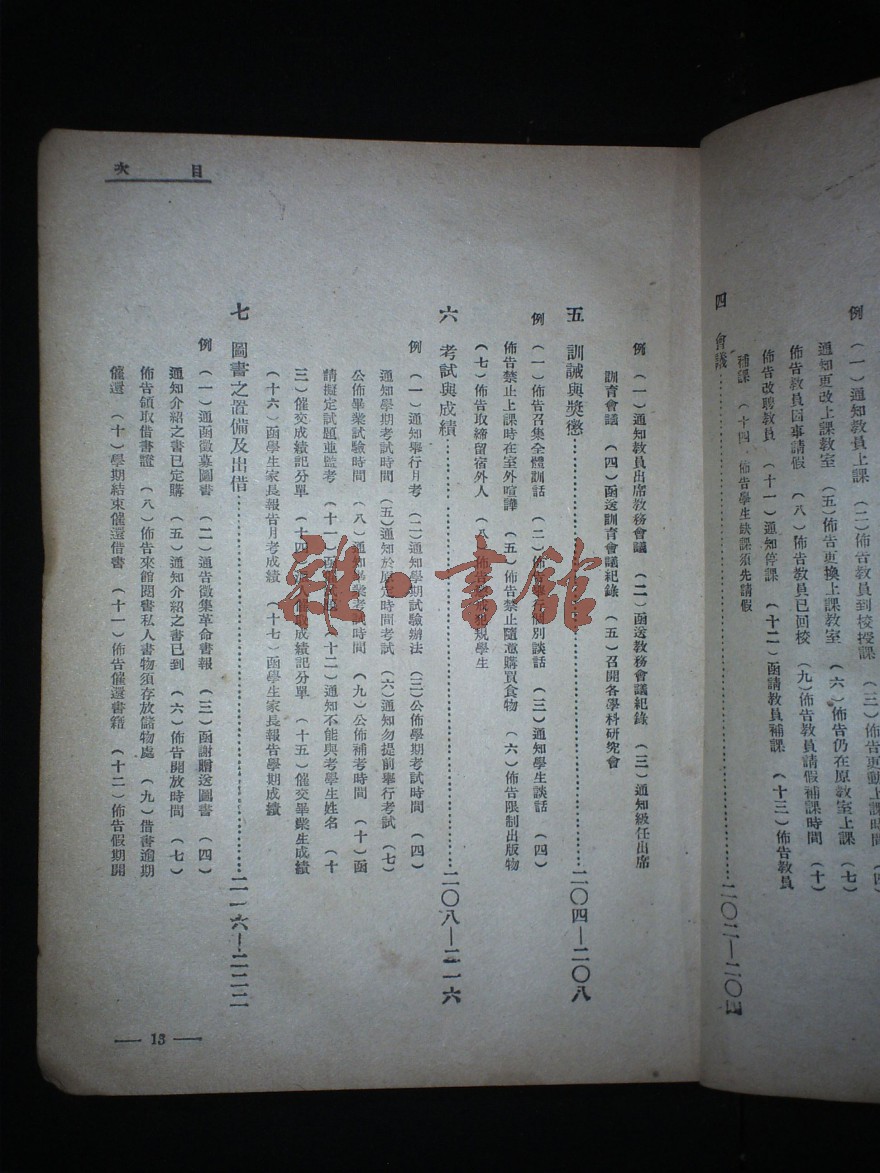 例 (一)通知教員上課 (二)佈告教員到校授課 (三)佈告更動上課時間 (四)
通知更改上課教室 (五)佈告更換上課教室 (六)佈告仍在原教室上課 (七)
佈告教員因事請假 (八)佈告教員已回校 (九)佈告教員請假補課時間 (十)
佈告改聘教員 (十一)通知停課 (十二)函請教員補課 (十三)佈告教員
補課 (十四)佈告學生缺課須先請假
四 會議……二〇二—二〇四
目次
例 (一)通知教員出席教務會議 (二)函送教務會議紀錄 (三)通知級任出席
訓育會議 (四)函送訓育會議紀錄 (五)召開各學科研究會
五 訓誡與獎懲……二〇四—二〇八
例 (一)佈告召集全體訓話 (二)佈告舉行個別談話 (三)通知學生談話 (四)
佈告禁止上課時在室外喧譁 (五)佈告禁止隨意購買食物 (六)佈告限制出版物
(七)佈告取締留宿外人 (八)佈告 犯規學生
六 考試與成績……二〇八—二一六
例 (一)通知舉行月考 (二)通知學期試驗辦法 (三)公佈學期考試時間 (四)
通知學期考試時間 (五)通知於原定時間考試 (六)通知勿提前舉行考試 (七)
公佈畢業試驗時間 (八)通知畢業考試時間 (九)公佈補考時間 (十)函
請擬定試題並監考 (十一)函 (十二)通知不能與考學生姓名 (十
三)催交成績記分單 (十四) 人催取成績記分單 (十五)催交畢業生成績
(十六)函學生家長報告月考成績 (十七)函學生家長報告學期成績
七 圖書之置備及出借……二一六—二二二
例 (一)通函徵募圖書 (二)通告徵集革命書報 (三)函謝贈送圖書 (四)
通知介紹之書已定購 (五)通知介紹之書已到 (六)佈告開放時間 (七)
佈告領取借書證 (八)佈告來館閱書私人書物須存放儲物處 (九)借書逾期
催還 (十)學期結束催還借書 (十一)佈告催還書籍 (十二)佈告假期開
— 13 —
雜·書館